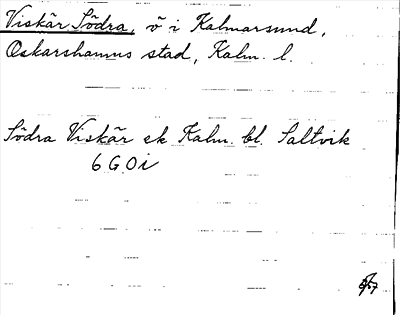 Viskär Södra, ö i Kalmarsund,
Oskarshamns stad, Kalm. l.
Södra Viskär ek Kalm. bl. Saltvik
6 G 0 i